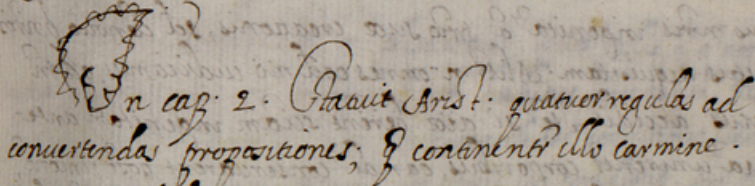 In cap. 2. Statuit Arist: quatuor regulas ad
convertendas propositiones; q̃ continentr̃ illo carmine.